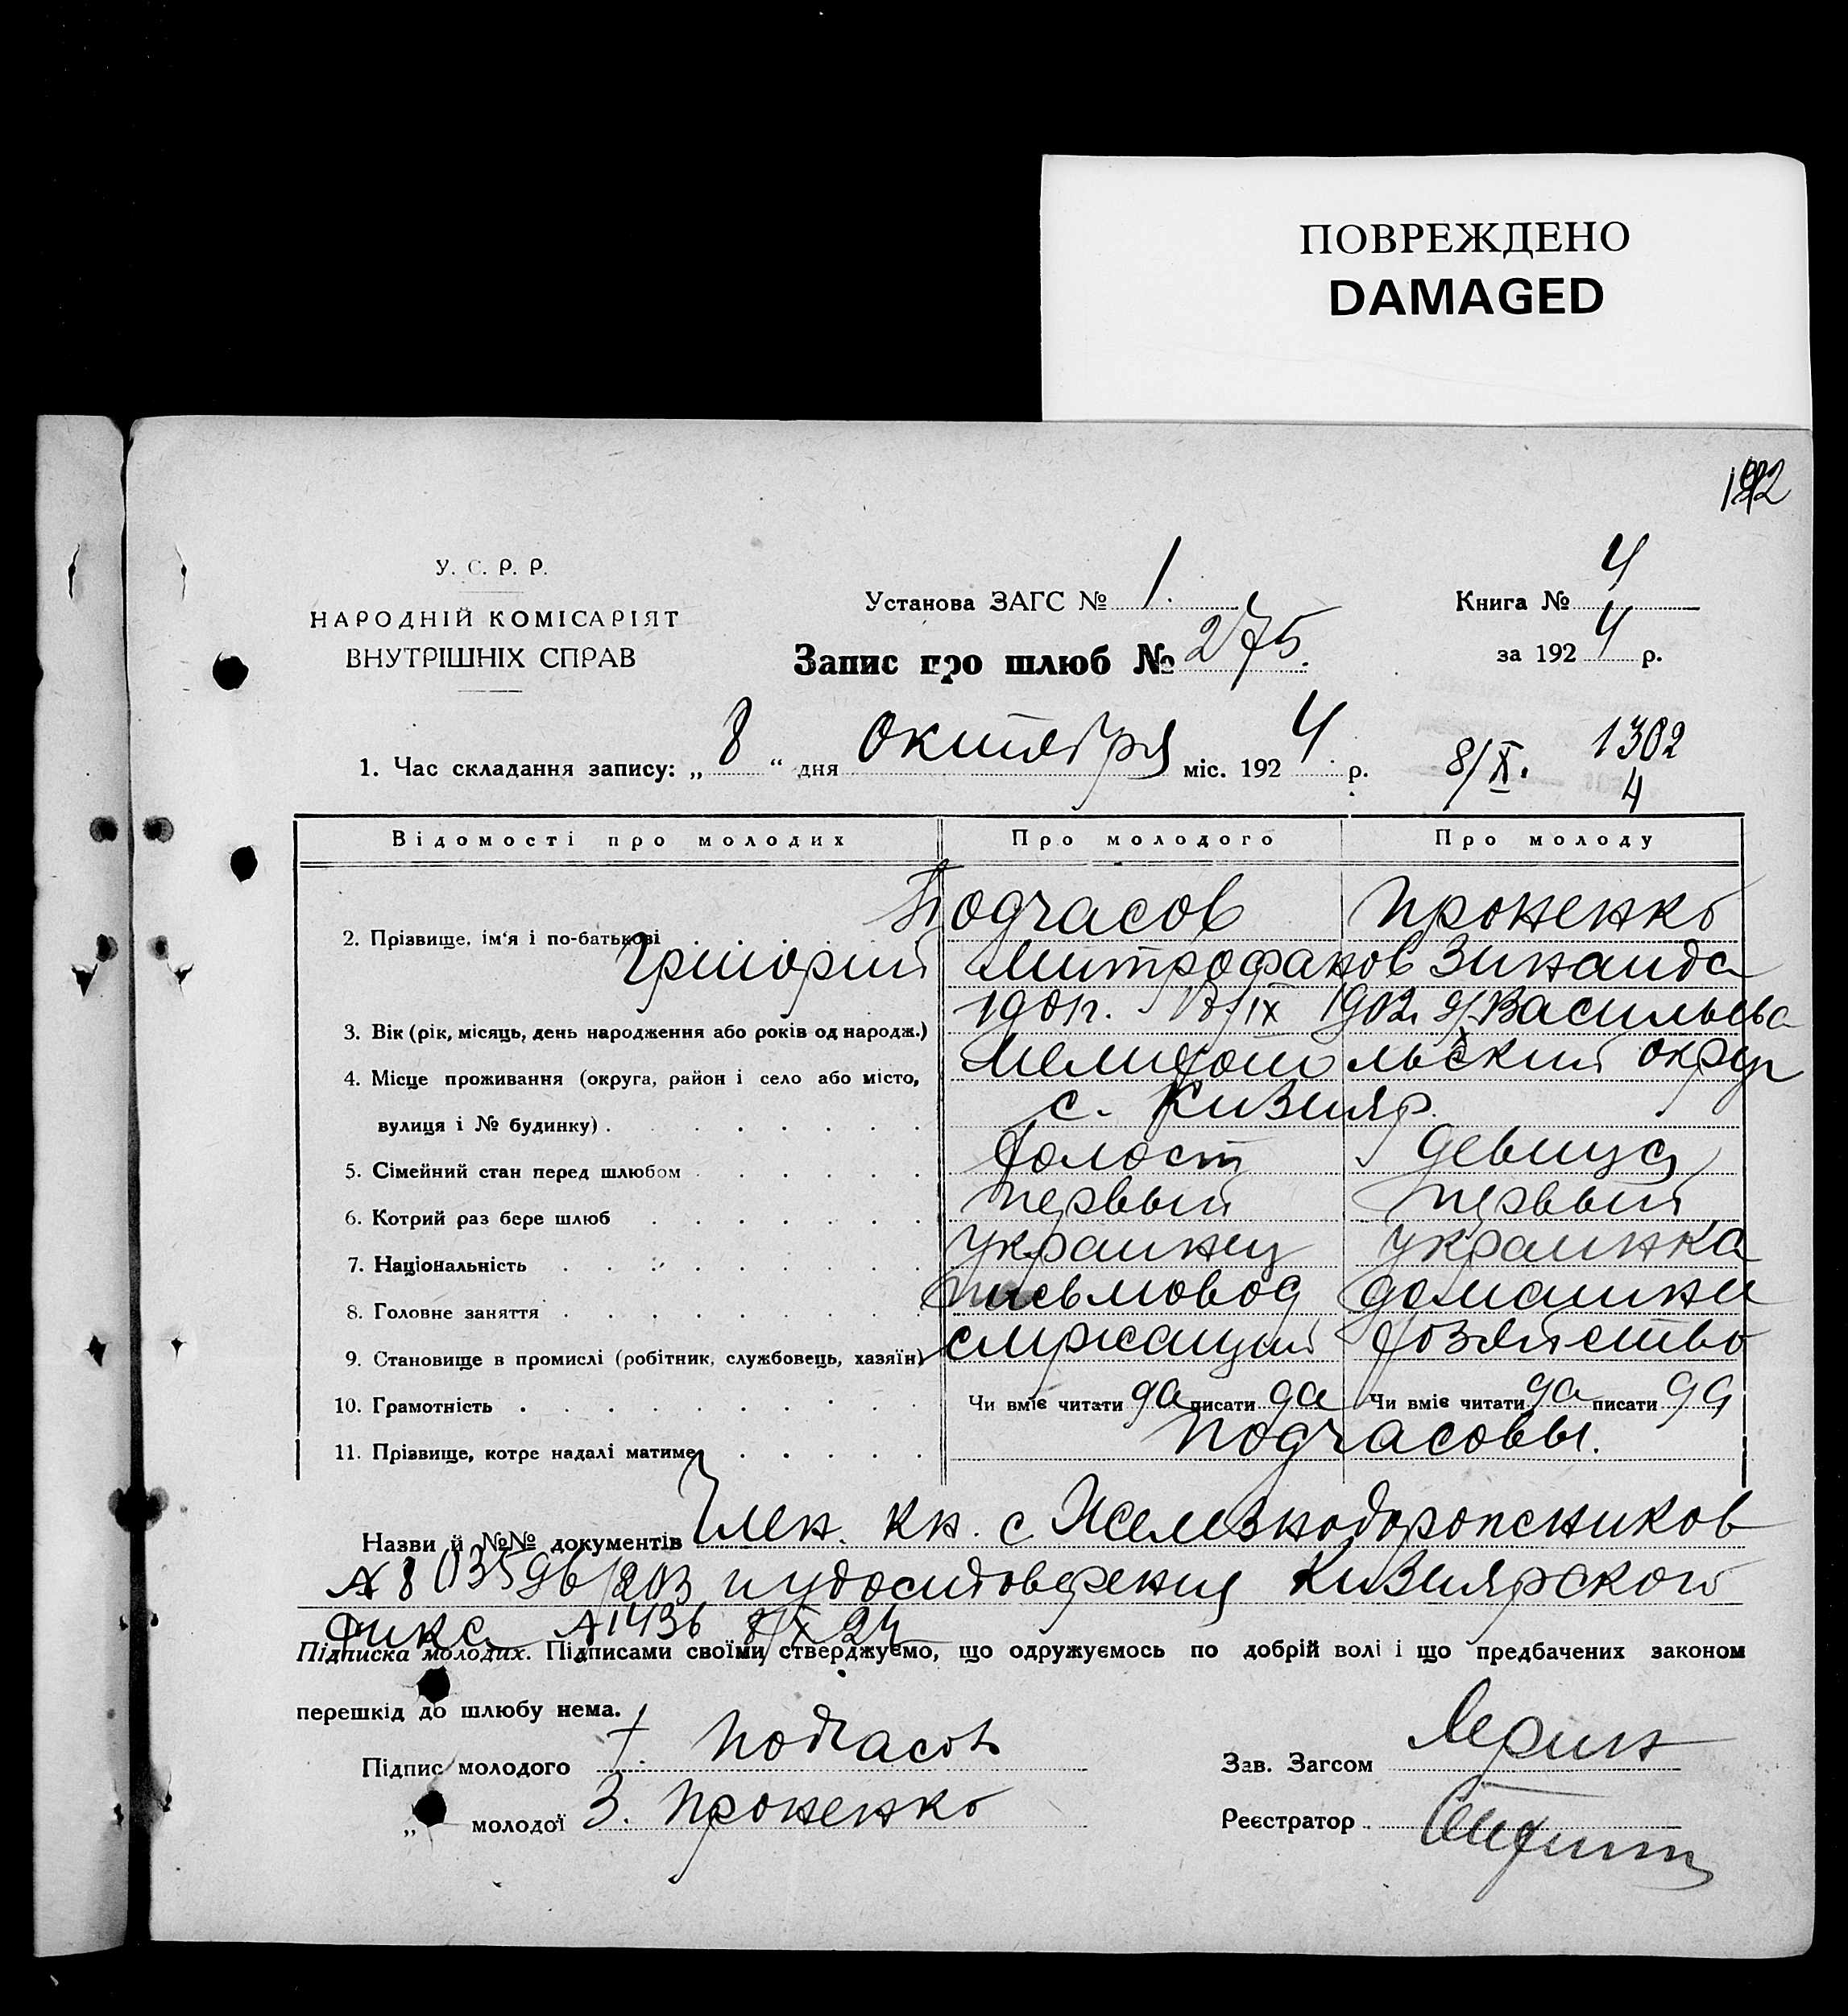 ПОВРЕЖДЕНО
DAMAGED
У. С. Р. Р.
НАРОДНІЙ КОМІСАРІЯТ
ВНУТРІШНІХ СПРАВ
Установа ЗАГС № 1.
Книга № 4
Запис про шлюб № 275.
за 1924 р.
1. Час складання запису: „ 8 “ дня октября міс. 1924 р. 8/X. 1302
4
Відомості про молодих Про молодого Про молоду
Подчасов Проненко
2. Прізвище, ім'я і по-батькові Григорий Митрофанов Зинаида
3. Вік (рік, місяць, день народження або років од народж.) 1901г. /IX 1902 Васильева
4. Місце проживання (округа, район і село або місто, Мелитопольский округ
вулиця і № будинку) с. Кизияр.
5. Сімейний стан перед шлюбом холост девица
6. Котрий раз бере шлюб первый первый
7. Національність украинец украинка
8. Головне заняття письмовод домашнее
9. Становище в промислі (робітник, службовець, хазяїн) служащий хозяйство
10. Грамотність Чи вміє читати да писати да Чи вміє читати да писати да
11. Прізвище, котре надалі матиме Подчасовы.
Назви й №№ документів Член. кн. с. Железнодорожников
и удостоверения Кизиярского
№ 1436 8/X 24
Підписка молодих. Підписами своїми стверджуємо, що одружуємось по добрій волі і що предбачених законом
перешкід до шлюбу нема.
Підпис молодого Г. Подчасов
Зав. Загсом
„ молодої З. Проненко
Реєстратор